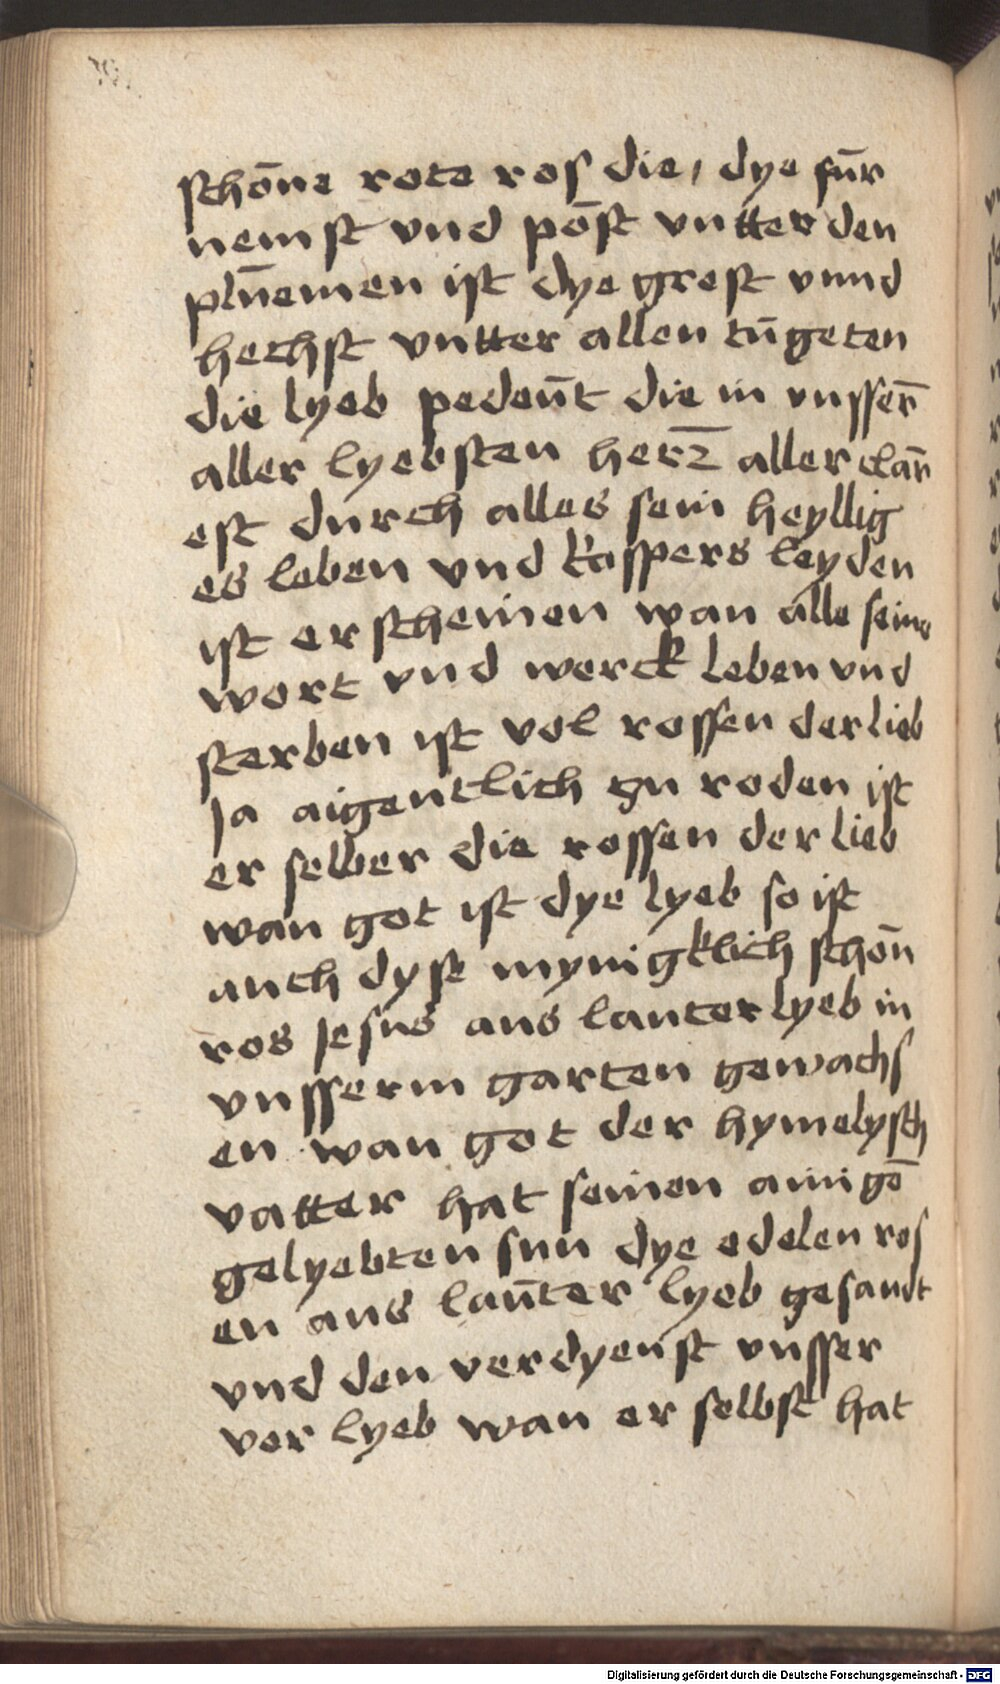 schōne rote ros die, dye für
nemst vnd pōst vntter den
plūemen ist dye grest vnnd
hechst vntter allen tūgeten
die lyeb pedeūt die in vnsserˉ
aller lyebsten herꝛˉ aller clār
est durch alles sein heyllig
es leben vnd kospers leyden
ist erscheinen wan alle seine
wort vnd werck leben vnd
sterben ist vol rossen der lieb
Ja aigentlich zu reden ist
er selber die rossen der lieb
wan got ist dye lyeb so ist
auch dyse mynigklich schōn
ros Jesus aus lauter lyeb in
vnsserm garten gewachs
en wan got der hymelysch
vatter hat seinen ainigē
gelyebten sun dye edelen ros
en aus laūter lyeb gesandt
vnd den verdyenst vnsser
ver lyeb wan er selbst hat
Digitalisierung gefördert durch die Deutsche Forschungsgemeinschaft - DFG